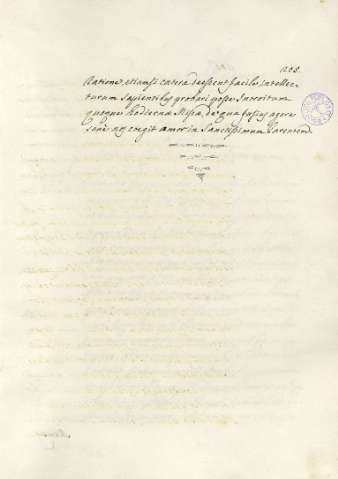 208.
Ratione, etiamsi cætera deessent facile intellec-
turum sapientibus probari posse Introitum
quoque hodiernæ Missæ, de qua fusius agere
sane nos coegit amor in Sanctissimum Parentem.